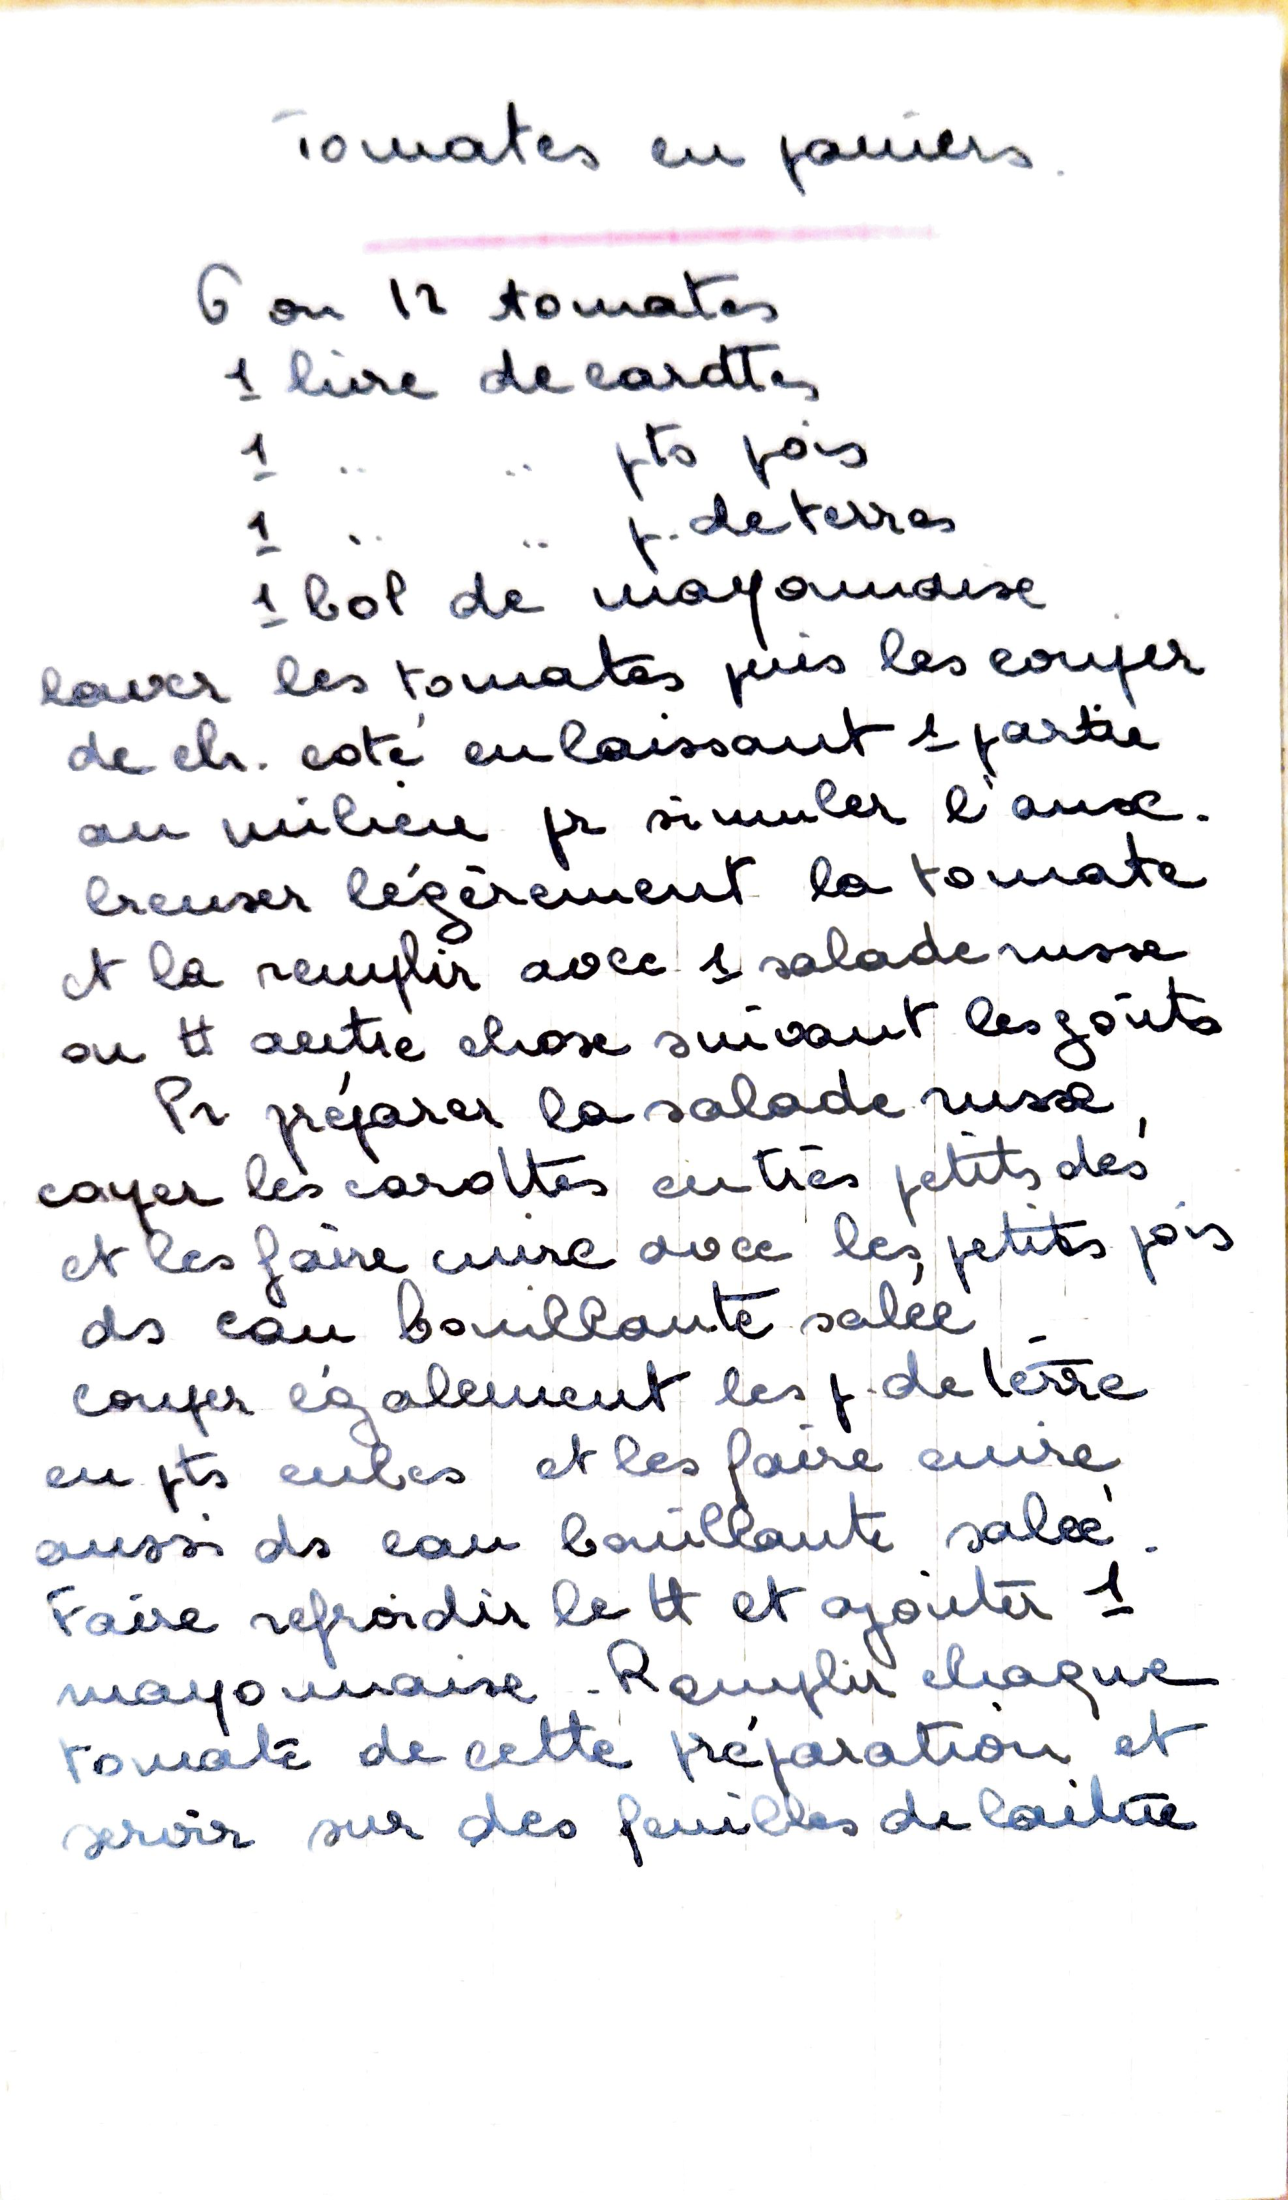 Tomates en paniers.
6 ou 12 tomates
1 livre de carottes
1 .. .. pts pois
1 .. .. p. de terres
1 bol de mayonnaise
laver les tomates puis les couper
de ch. coté en laissant 1 partie
au milieu pr simuler l'anse.
creuser légèrement la tomate
et la remplir avec 1 salade russe
ou tt autre chose suivant les goûts
Pr préparer la salade russe,
couper les carottes en très petits dés
et les faire cuire avec les petits pois
ds eau bouillante salée
couper également les p. de terre
en pts cubes et les faire cuire
aussi ds eau bouillante salée.
Faire refroidir le tt et ajouter 1
mayonnaise. Remplir chaque
tomate de cette préparation et
servir sur des feuilles de laitue